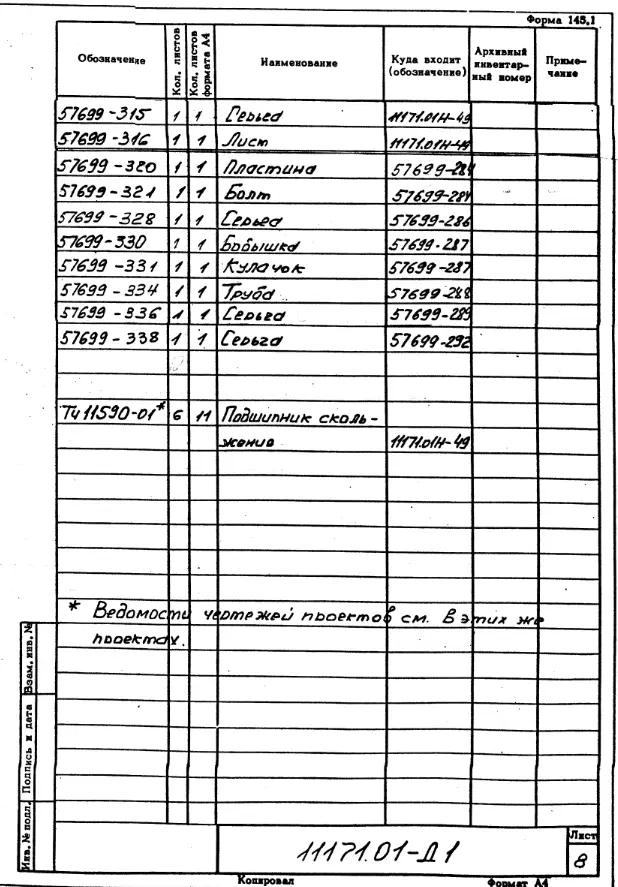 Форма 145.1
Обозначение Кол. листов Кол. листов формата А4 Наименование Куда входит (обозначение) Архивный инвентарный номер Примечание
57699-315 1 1 Серьга 11171.01Н-49
57699-316 1 1 Лист 11171.01Н-49
57699-320 1 1 Пластина 57699-284
57699-321 1 1 Болт 57699-284
57699-328 1 1 Серьга 57699-286
57699-330 1 1 Бобышка 57699-287
57699-331 1 1 Кулачок 57699-287
57699-334 1 1 Труба 57699-288
57699-336 1 1 Серьга 57699-289
57699-338 1 1 Серьга 57699-292
Ти11590-01* 6 11 Подшипник сколь-
жения 11171.01Н-49
* Ведомости чертежей проектов см. в этих же
проектах.
Взам. инв. №
Подпись и дата
Инв. № подл.
11171.01-Д1
Лист
8
Копировал Формат А4